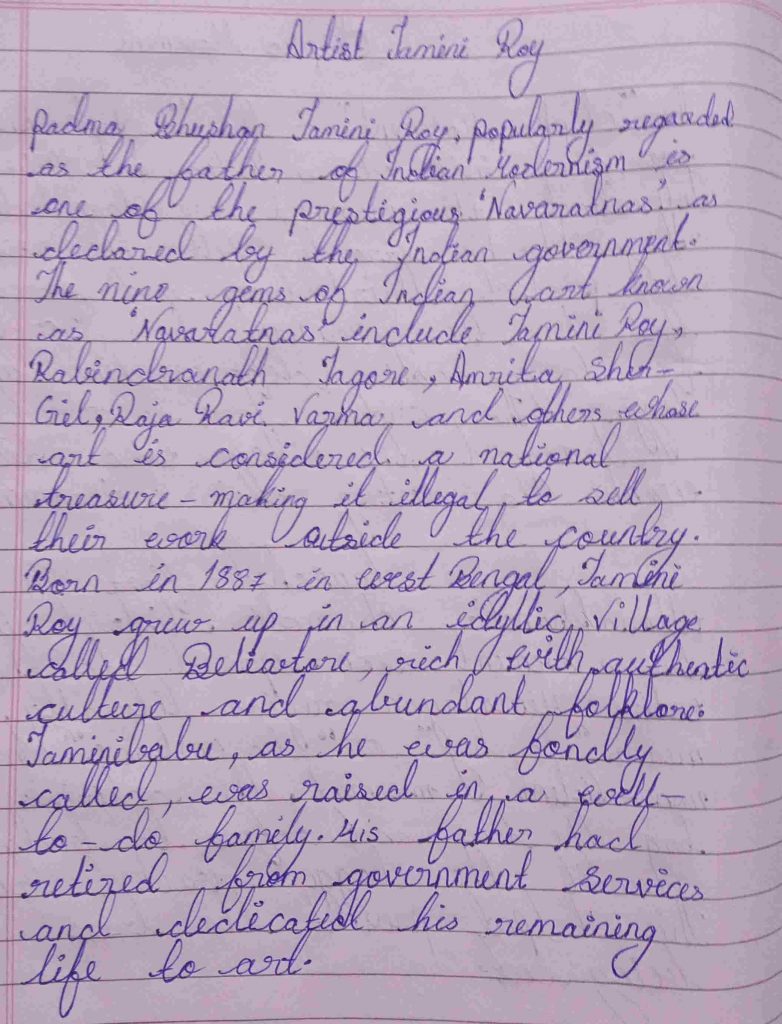 Artist Jamini Roy
Padma Bhushan Jamini Roy, popularly regarded
as the father of Indian Modernism is
one of the prestigious 'Navaratnas' as
declared by the Indian government.
The nine gems of Indian art known
as 'Navaratnas' include Jamini Roy,
Rabindranath Tagore, Amrita Sher-
Giel, Raja Ravi Varma and others whose
art is considered a national
treasure - making it illegal to sell
their work outside the country.
Born in 1887 in West Bengal, Jamini
Roy grew up in an idyllic village
called Beliatore, rich with authentic
culture and abundant folklore.
Jaminibabu, as he was fondly
called, was raised in a well-
to-do family. His father had
retired from government services
and dedicated his remaining
life to art.